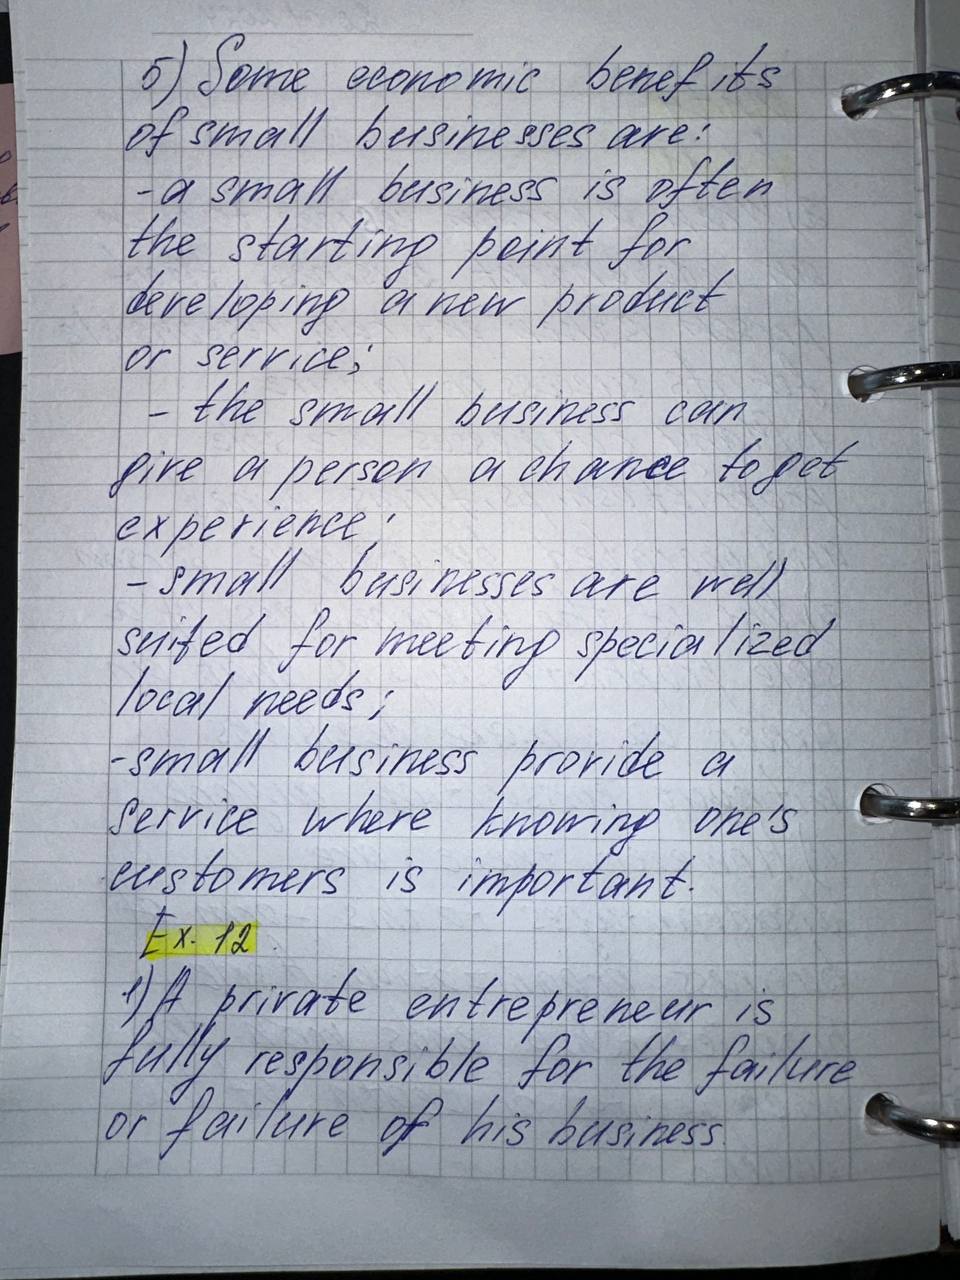 5) Some economic benefits
of small businesses are:
- a small business is often
the starting point for
developing a new product
or service;
- the small business can
give a person a chance to get
experience;
- small businesses are well
suited for meeting specialized
local needs;
- small business provide a
service where knowing one's
customers is important.
Ex. 12
1) A private entrepreneur is
fully responsible for the failure
or failure of his business